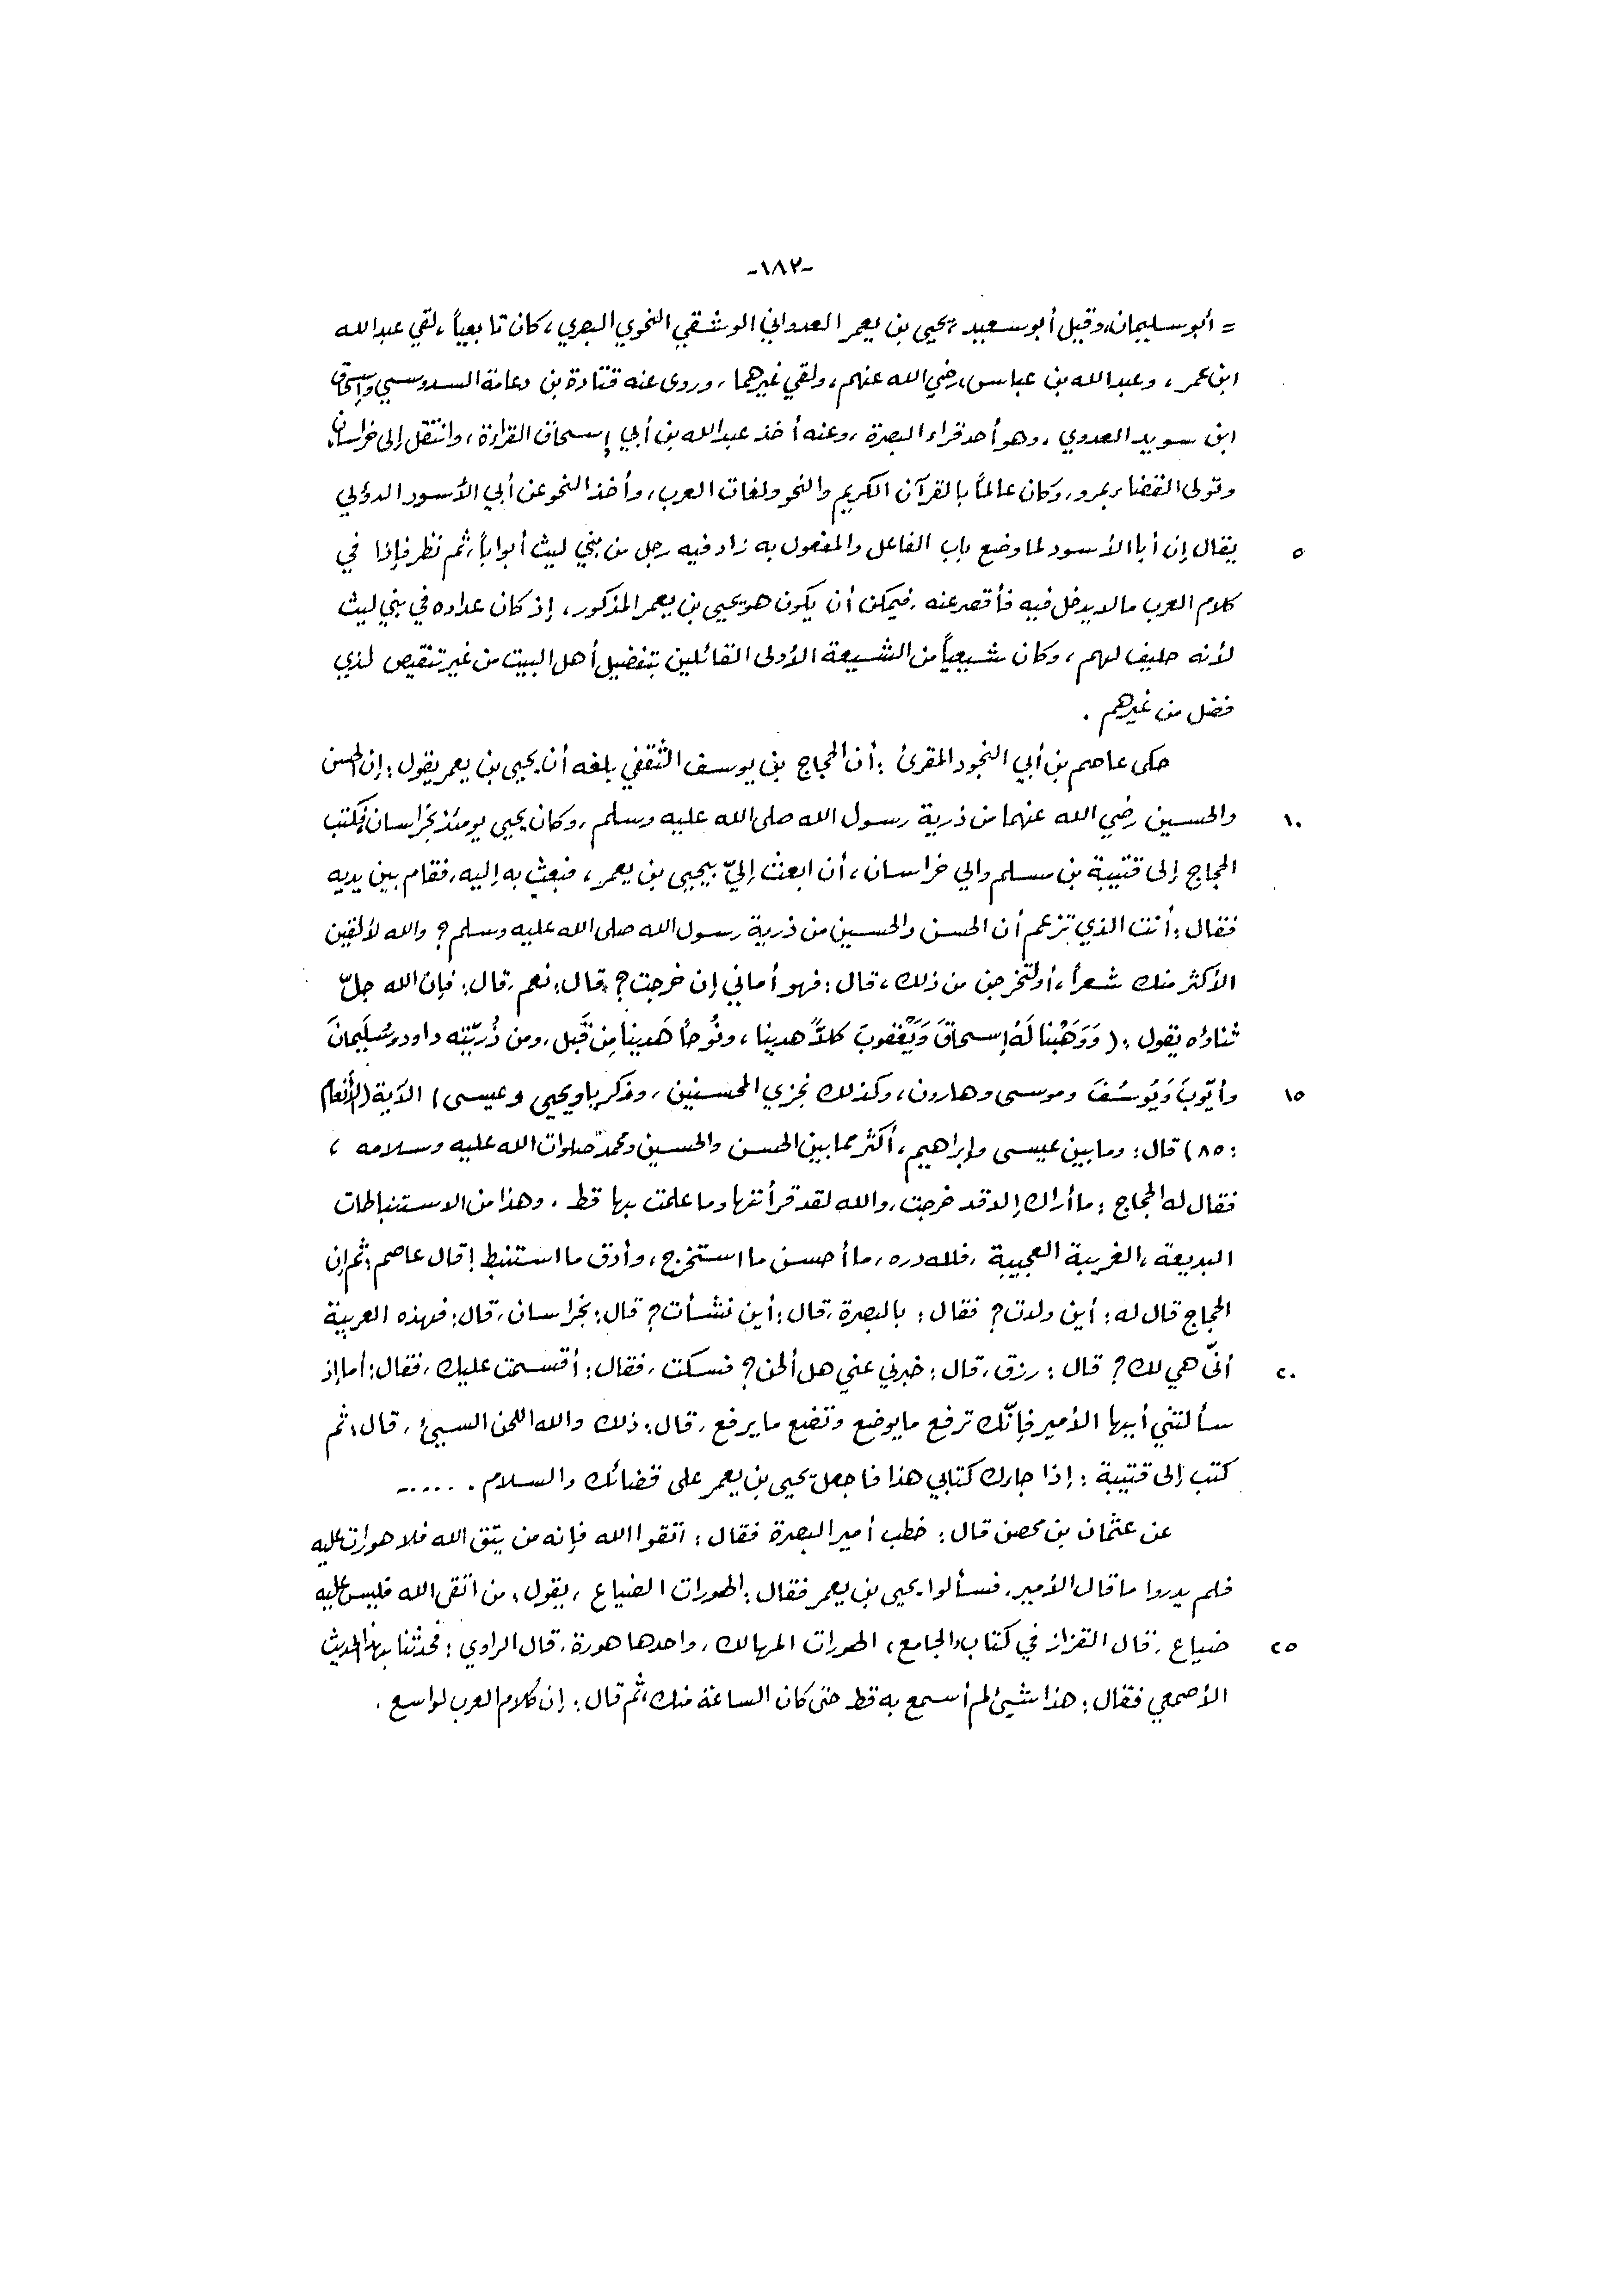 -١٨٢-
= أبو سليمان، وقيل أبو سعيد، يحيى بن يعمر العدواني الوشقي النحوي البصري، كان تابعياً، لقي عبد الله
ابن عمر، وعبد الله بن عباس، رضي الله عنهم، ولقي غيرهما، وروى عنه قتادة بن دعامة السدوسي وإسحاق
ابن سويد العدوي، وهو أحد قراء البصرة، وعنه أخذ عبد الله بن أبي إسحاق القراءة، وانتقل إلى خراسان،
وتولى القضاء بمرو، وكان عالماً بالقرآن الكريم والنحو ولغات العرب، وأخذ النحو عن أبي الأسود الدؤلي
٥ يقال إن أبا الأسود لما وضع باب الفاعل والمفعول به زاد فيه رجل من بني ليث أبواباً، ثم نظر فإذا في
كلام العرب مالا يدخل فيه فأقصر عنه، فيمكن أن يكون هو يحيى بن يعمر المذكور، إذ كان عداده في بني ليث
لأنه حليف لهم، وكان شيعياً من الشيعة الأولى القائلين بتفضيل أهل البيت من غير تنقيص لذي
فضل من غيرهم .
حكى عاصم بن أبي النجود المقرئ : أن الحجاج بن يوسف الثقفي بلغه أن يحيى بن يعمر يقول : إن الحسن
١٠ والحسين رضي الله عنهما من ذرية رسول الله صلى الله عليه وسلم، وكان يحيى يومئذ بخراسان، فكتب
الحجاج إلى قتيبة بن مسلم والي خراسان، أن ابعث إليّ بيحيى بن يعمر، فبعث به إليه، فقام بين يديه
فقال : أنت الذي تزعم أن الحسن والحسين من ذرية رسول الله صلى الله عليه وسلم؟ والله لألقين
الأكثر منك شعراً، أو لتخرجن من ذلك، قال : فهو أماني إن خرجت؟ قال: نعم، قال: فإن الله جلّ
ثناؤه يقول : (وَوَهَبْنا لَهُ إسحاقَ وَيَعْقوبَ كلاً هدينا، ونُوحاً هَدينا مِن قَبل، ومن ذُريّتِه داود وسُلَيمانَ
١٥ وأيّوبَ وَيُوسُفَ وموسى وهارون، وكذلك نجزي المحسنين، وزكريا ويحيى وعيسى) الآية (الأنعام
: ٨٥) قال: وما بين عيسى وإبراهيم، أكثر مما بين الحسن والحسين ومحمد صلوات الله عليه وسلامه ،
فقال له الحجاج : ما أراك إلا قد خرجت، والله لقد قرأتها وما علمت بها قط . وهذا من الاستنباطات
البديعة، الغريبة العجيبة ، فلله دره، ما أحسن ما استخرج، وأدق ما استنبط! قال عاصم : ثم إن
الحجاج قال له : أين ولدت؟ فقال : بالبصرة، قال : أين نشأت؟ قال: بخراسان، قال: فهذه العربية
٢٠ أنّى هي لك؟ قال : رزق، قال : خبرني عني هل ألحن؟ فسكت، فقال : أقسمت عليك، فقال: أما إذ
سألتني أيها الأمير فإنّك ترفع ما يوضع وتضع ما يرفع، قال: ذلك والله اللحن السيئ، قال: ثم
كتب إلى قتيبة : إذا جاءك كتابي هذا فاجعل يحيى بن يعمر على قضائك والسلام . .....
عن عثمان بن محصن قال : خطب أمير البصرة فقال : اتقوا الله فإنه من يتق الله فلا هورات عليه
فلم يدروا ما قال الأمير، فسألوا يحيى بن يعمر فقال : الهورات الضياع ، يقول، من اتقى الله فليس عليه
٢٥ ضياع، قال القزاز في كتاب، الجامع، الهورات المهالك، واحدها هورة، قال الراوي : فحدثنا بهذا الحديث
الأصمعي فقال : هذا شيئ لم أسمع به قط حتى كان الساعة منك، ثم قال : إن كلام العرب لواسع .